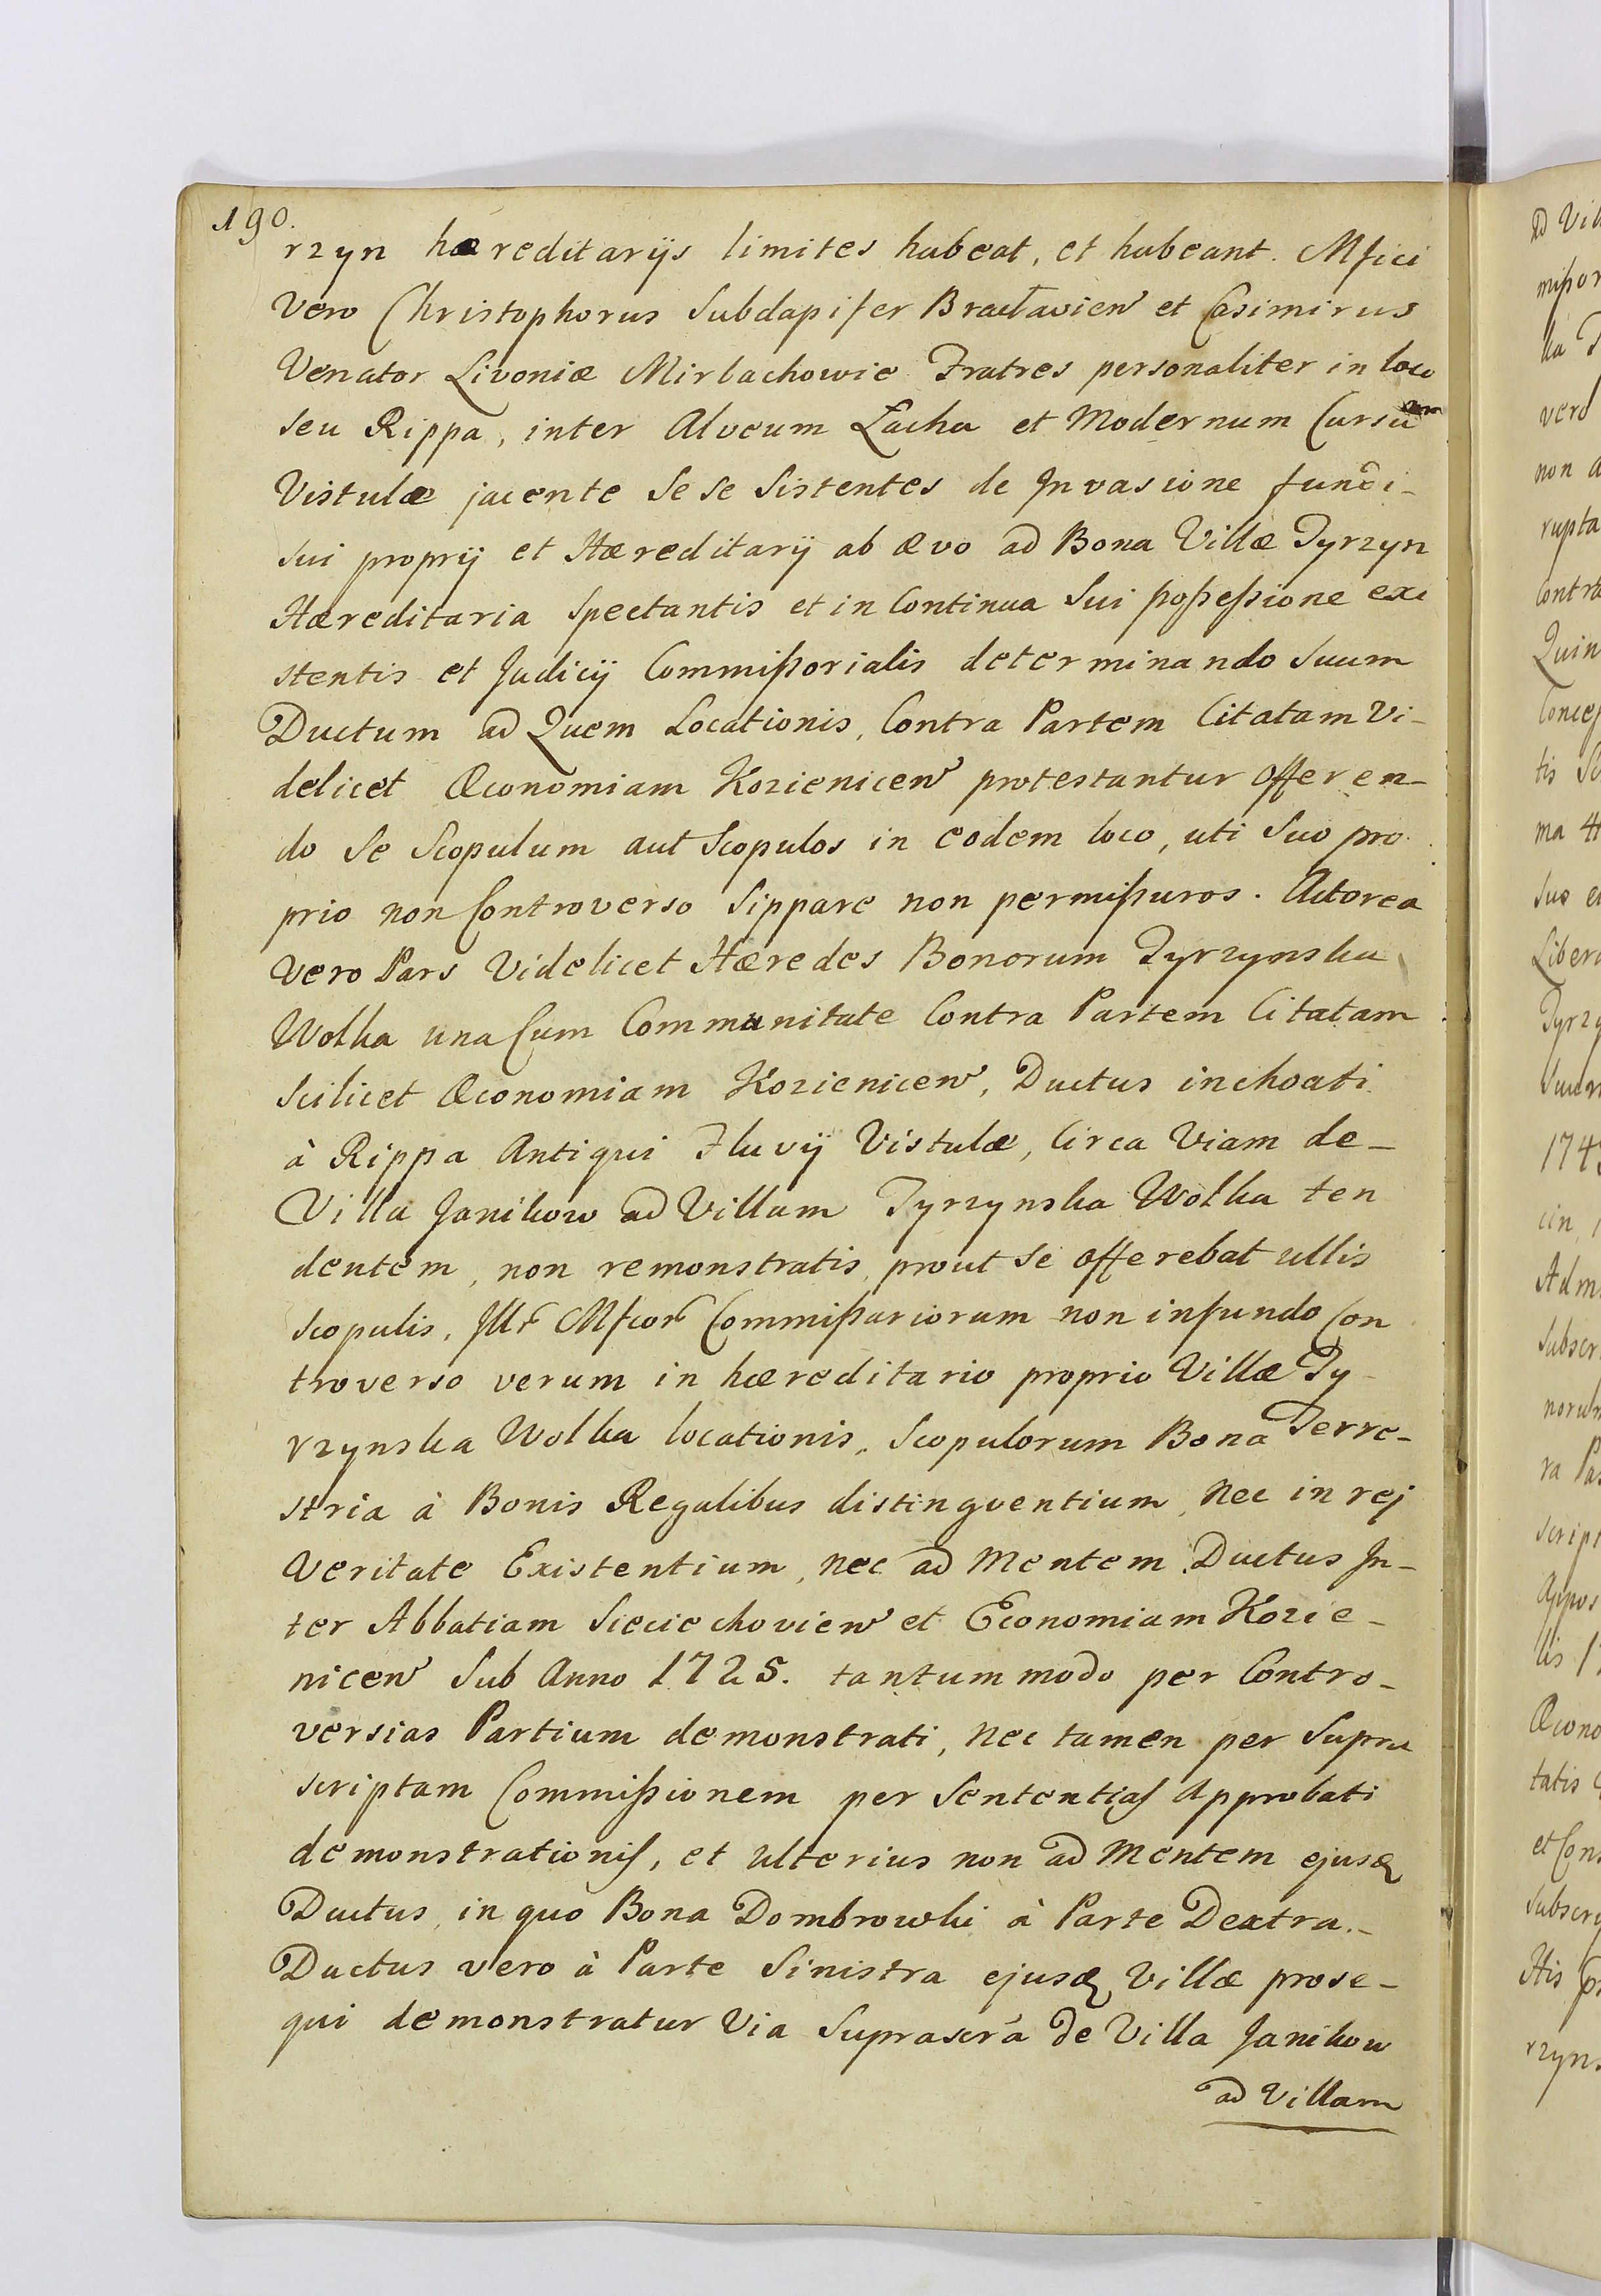 190.
rzyn hæreditarijs limites habeat, et habeant. Mfici
vero Christophorus Subdapifer Bractavien et Casimirus
Venator Livoniæ Mirlachowie Fratres personaliter in loco
seu Rippa, inter Alveum Lacha et Modernum Cursum
Vistulæ jacente Se se Sistentes de Invasione fundi-
sui proprij et Hæreditarij ab ævo ad Bona Villæ Tyrzyn
Hæreditaria Spectantis et in Continua Sui poßeßione exi
stentis et Judicij Commißorialis determinando Suum
Ductum ad Quem Locationis, Contra Partem Citatam Vi-
delicet Œconomiam Kozienicen protestantur offeren-
do Se Scopulum aut Scopulos in eodem loco, uti Suo pro
prio non Controverso Sippare non permißuros. Actorea
vero Pars Videlicet Hæredes Bonorum Tyrzynska
Wolka una Cum Communitate Contra Partem Citatam
Scilicet Œconomiam Kozienicen, Ductus inchoati
à Rippa Antiqui Fluvij Vistulæ, Circa Viam de-
Villa Janikow ad Villam Tyrzynska Wolka ten
dentem, non remonstratis, prout se offerebat ullis
scopulis, Illr Mfcor Commißariorum non in fundo Con
troverso verum in hæreditario proprio Villæ Ty-
rzynska Wolka locationis, Scopulorum Bona Terre-
stria à Bonis Regalibus distingventium, Nec in rej
veritate Existentium, nec ad Mentem Ductus In-
ter Abbatiam Sieciechovien et Economiam Kozie-
nicen Sub Anno 1725. tantummodo per Contro-
versias Partium demonstrati, nec tamen per Supra
scriptam Commißionem per Sententias Approbati
demonstrationis, et ulterius non ad Mentem ejusq
Ductus, in quo Bona Dombrowki à Parte Dextra.-
Ductus vero à Parte Sinistra ejusq Villæ prose-
qui demonstratur Via Suprascra de Villa Janikow
ad Villam